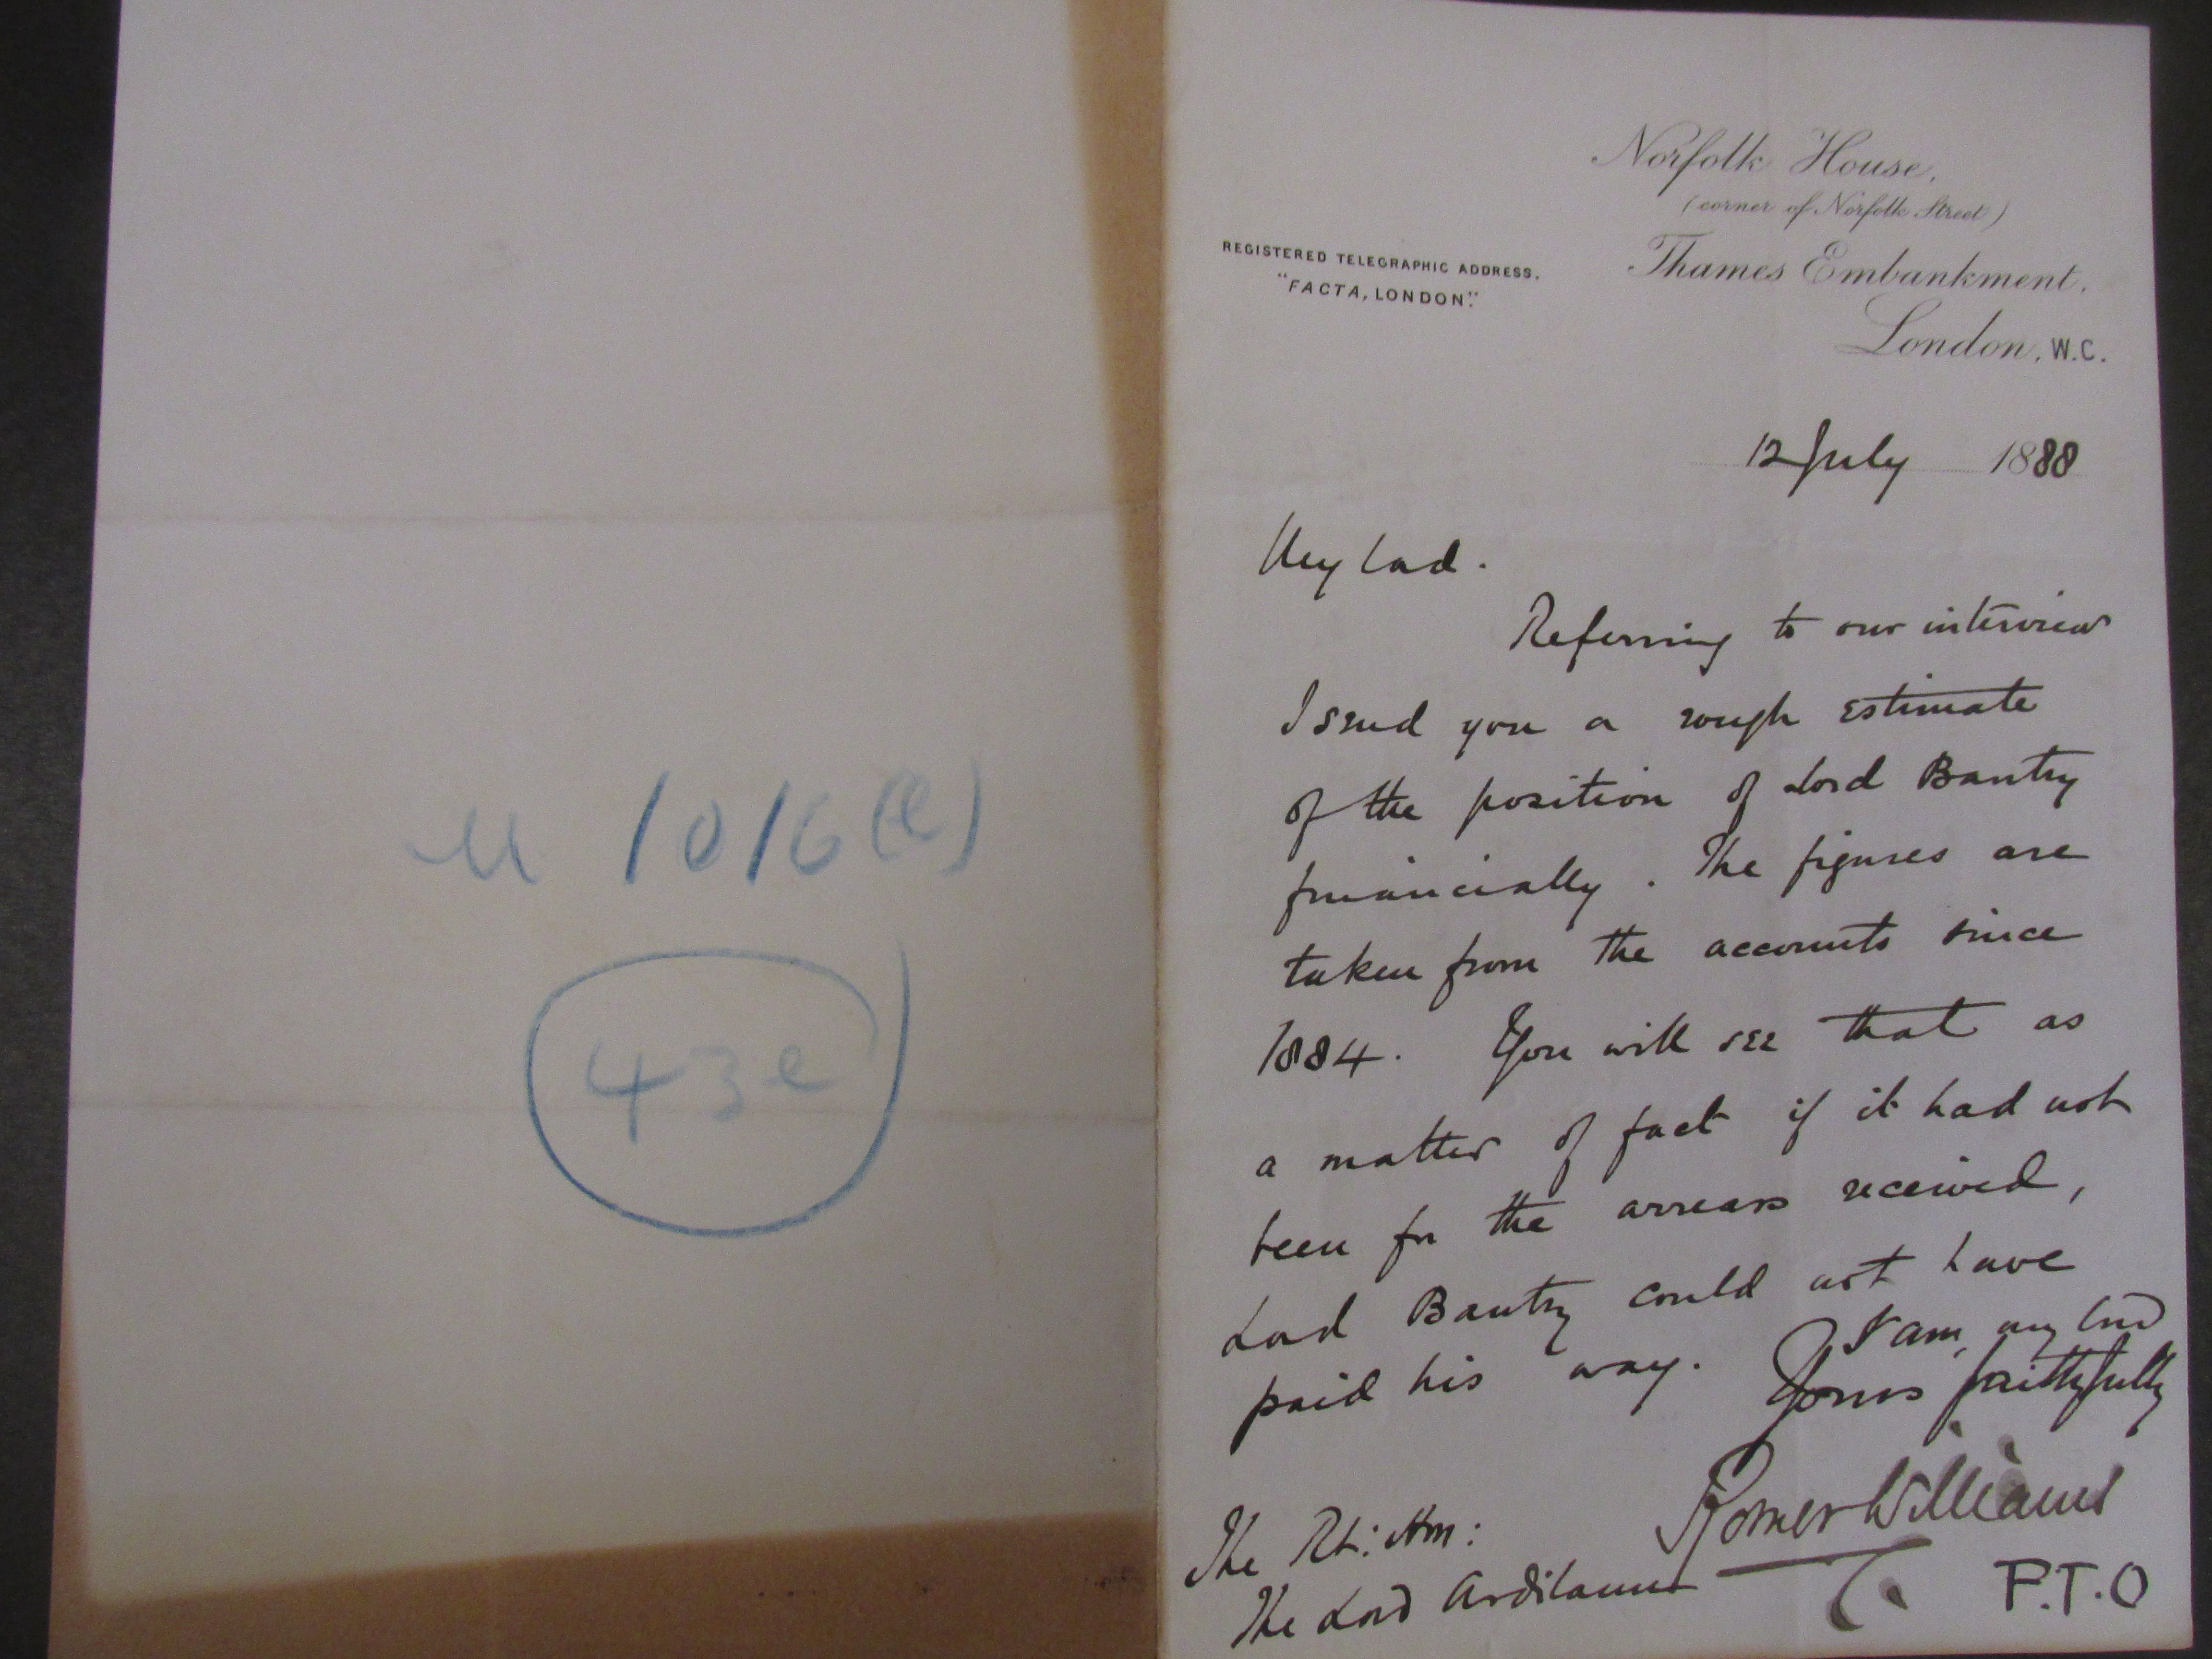 M 1016(e)
43e
Norfolk House,
(corner of Norfolk Street)
REGISTERED TELEGRAPHIC ADDRESS.
"FACTA, LONDON".
Thames Embankment,
London, W.C.
12 July 1888
My Lord.
Referring to our interview
I send you a rough estimate
of the position of Lord Bantry
financially. The figures are
taken from the accounts since
1884. You will see that as
a matter of fact if it had not
been for the arrears received,
Lord Bantry could not have
paid his way.
I am, my Lord
Yours faithfully
Romer Williams
The Rt: Hon:
The Lord Ardilaun
P.T.O